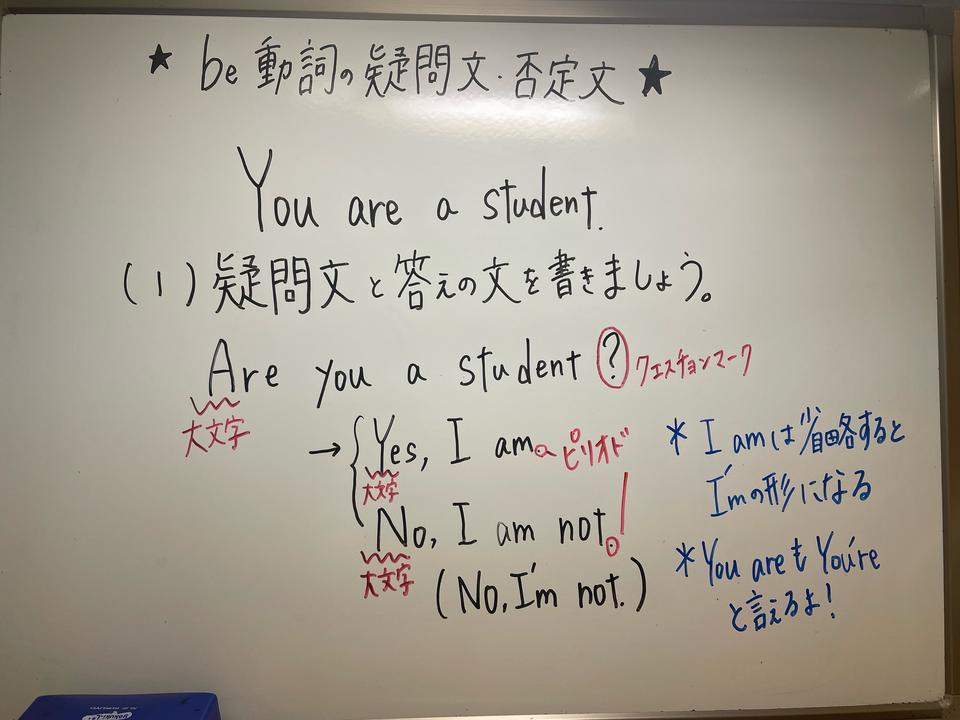 ★ be動詞の疑問文・否定文 ★
You are a student.
(1) 疑問文と答えの文を書きましょう。
Are you a student ? クエスチョンマーク
大文字
→ Yes, I am. ピリオド
大文字
No, I am not.
大文字
(No, I'm not.)
* I amは省略すると
I'mの形になる
* You areも You're
と言えるよ!